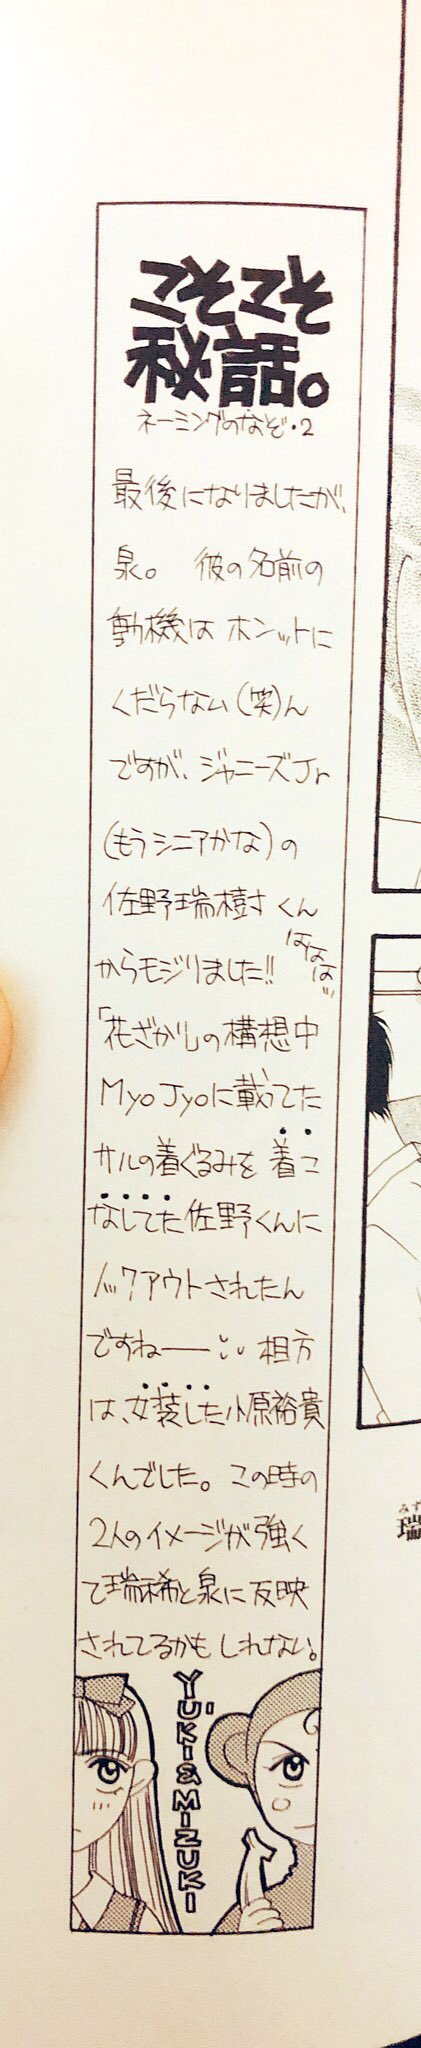 そこそこ
秘話。
ネーミングのなぞ・2
最後になりましたが、
泉。 彼の名前の
動機は ホンットに
くだらない(笑)ん
ですが、ジャニーズJr
(もうシニアかな)の
佐野瑞樹くん
からモジりました!!
ははは
「花ざかり」の構想中
Myo Jyoに載ってた
サルの着ぐるみを 着こ
なしてた佐野くんに
ノックアウトされたん
ですねー 相方
は、女装した小原裕貴
くんでした。この時の
2人のイメージが強く
て瑞稀と泉に反映
されてるかもしれない。
YŪKI&MIZUKI
みず
瑞